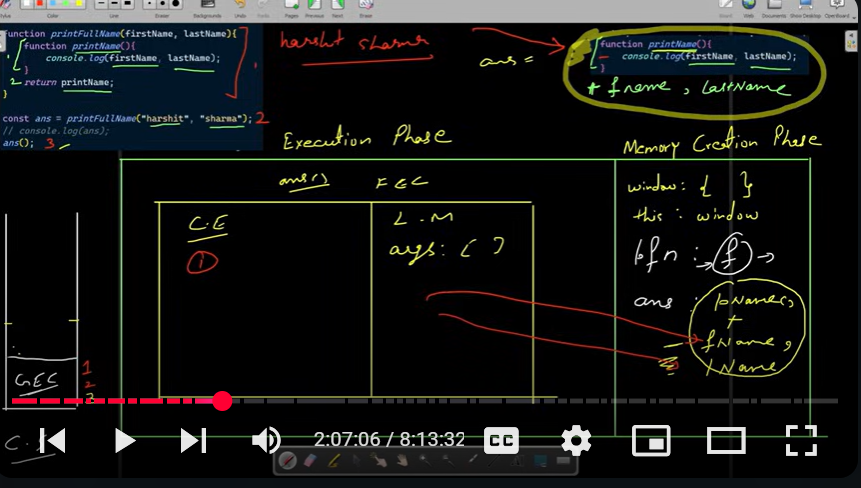 Backgrounds Undo Redo Pages Previous Next Eraser Board Web Documents Show Desktop Open-Sankore
function printFullName(firstName, lastName){
function printName(){
console.log(firstName, lastName);
}
2 return printName;
}
const ans = printFullName("harshit", "sharma"); 2
// console.log(ans);
ans(); 3
harshit sharma
ans =
function printName(){
console.log(firstName, lastName);
}
+ fname, lastName
Execution Phase
Memory Creation Phase
ans() FEC
C.E
1
L.M
args: [ ]
window: { }
this: window
pfn : → f →
ans : pName(),
+
fName,
lName
GEC
1
2
3
C.S
2:07:06 / 8:13:32
CC